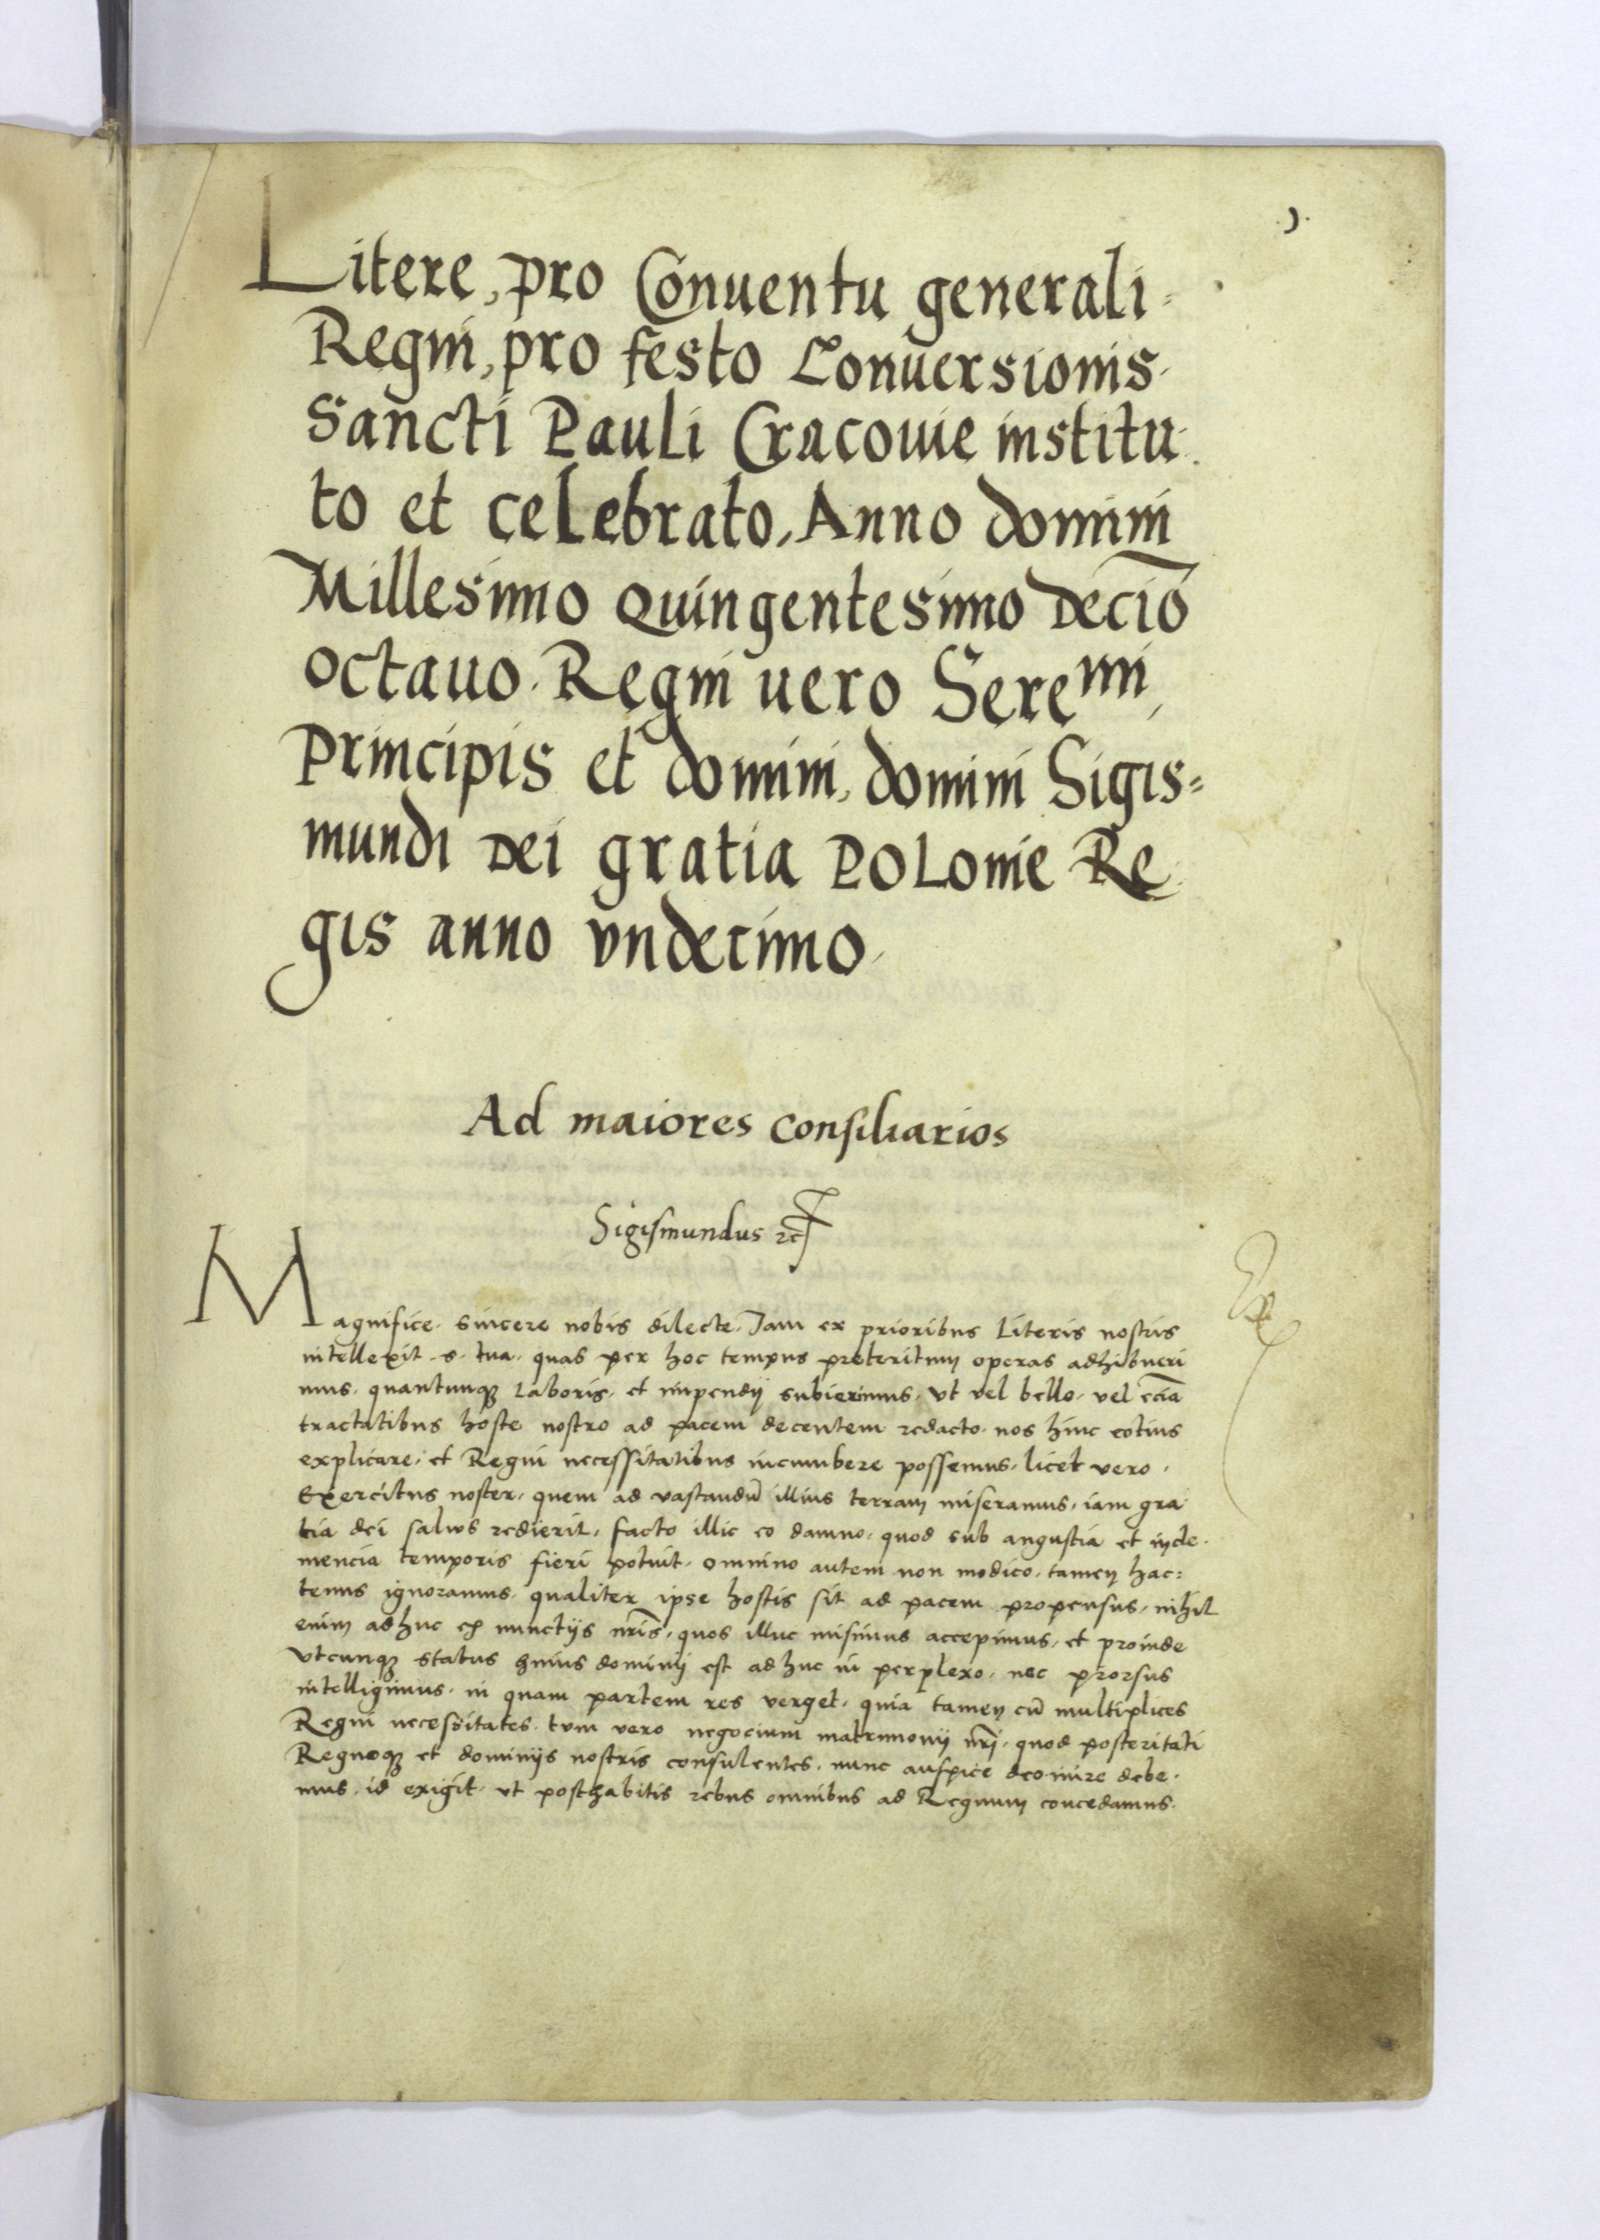 Litere, pro Conuentu generali
Regni, pro festo Conuersionis
Sancti Pauli Cracouie institu
to et celebrato, Anno domini
Millesimo Quingentesimo Decio
octauo. Regni uero Seremi,
Principis et domini, domini Sigis=
mundi Dei gratia Polonie Re
gis anno vndecimo.
Ad maiores consiliarios
Sigismundus
Magnifice. sincere nobis dilecte. Jam ex prioribus Literis nostris
intellexit. s. tua. quas per hoc tempus preteritum operas adhibueri
mus. quantumq; Laboris, et impendij subierimus. Vt vel bello. vel ecia
tractatibus hoste nostro ad pacem decentem redacto. nos hinc totius
explicare. et Regni necessitatibus incumbere possemus. licet vero.
Exercitus noster. quem ad vastandu illius terram miseramus. iam gra
tia dei saluus redierit. facto illic eo damno. quod sub angustia et incle.
mencia temporis fieri potuit. omnino autem non modico. tamen hac=
tenus ignoramus. qualiter ipse hostis sit ad pacem propensus. nihil
enim adhuc ex nunctijs nris. quos illuc misimus accepimus. et proinde
Vtcunq; status huius dominij est adhuc in perplexo. nec prorsus
intelligimus. in quam partem res verget. quia tamen cu multiplices
Regni necessitates. tum vero negocium matrimonij nri. quod posteritati
Regnoq; et dominijs nostris consulentes. nunc auspice deo inire debe.
mus. id exigit. vt posthabitis rebus omnibus ad Regnum concedamus.